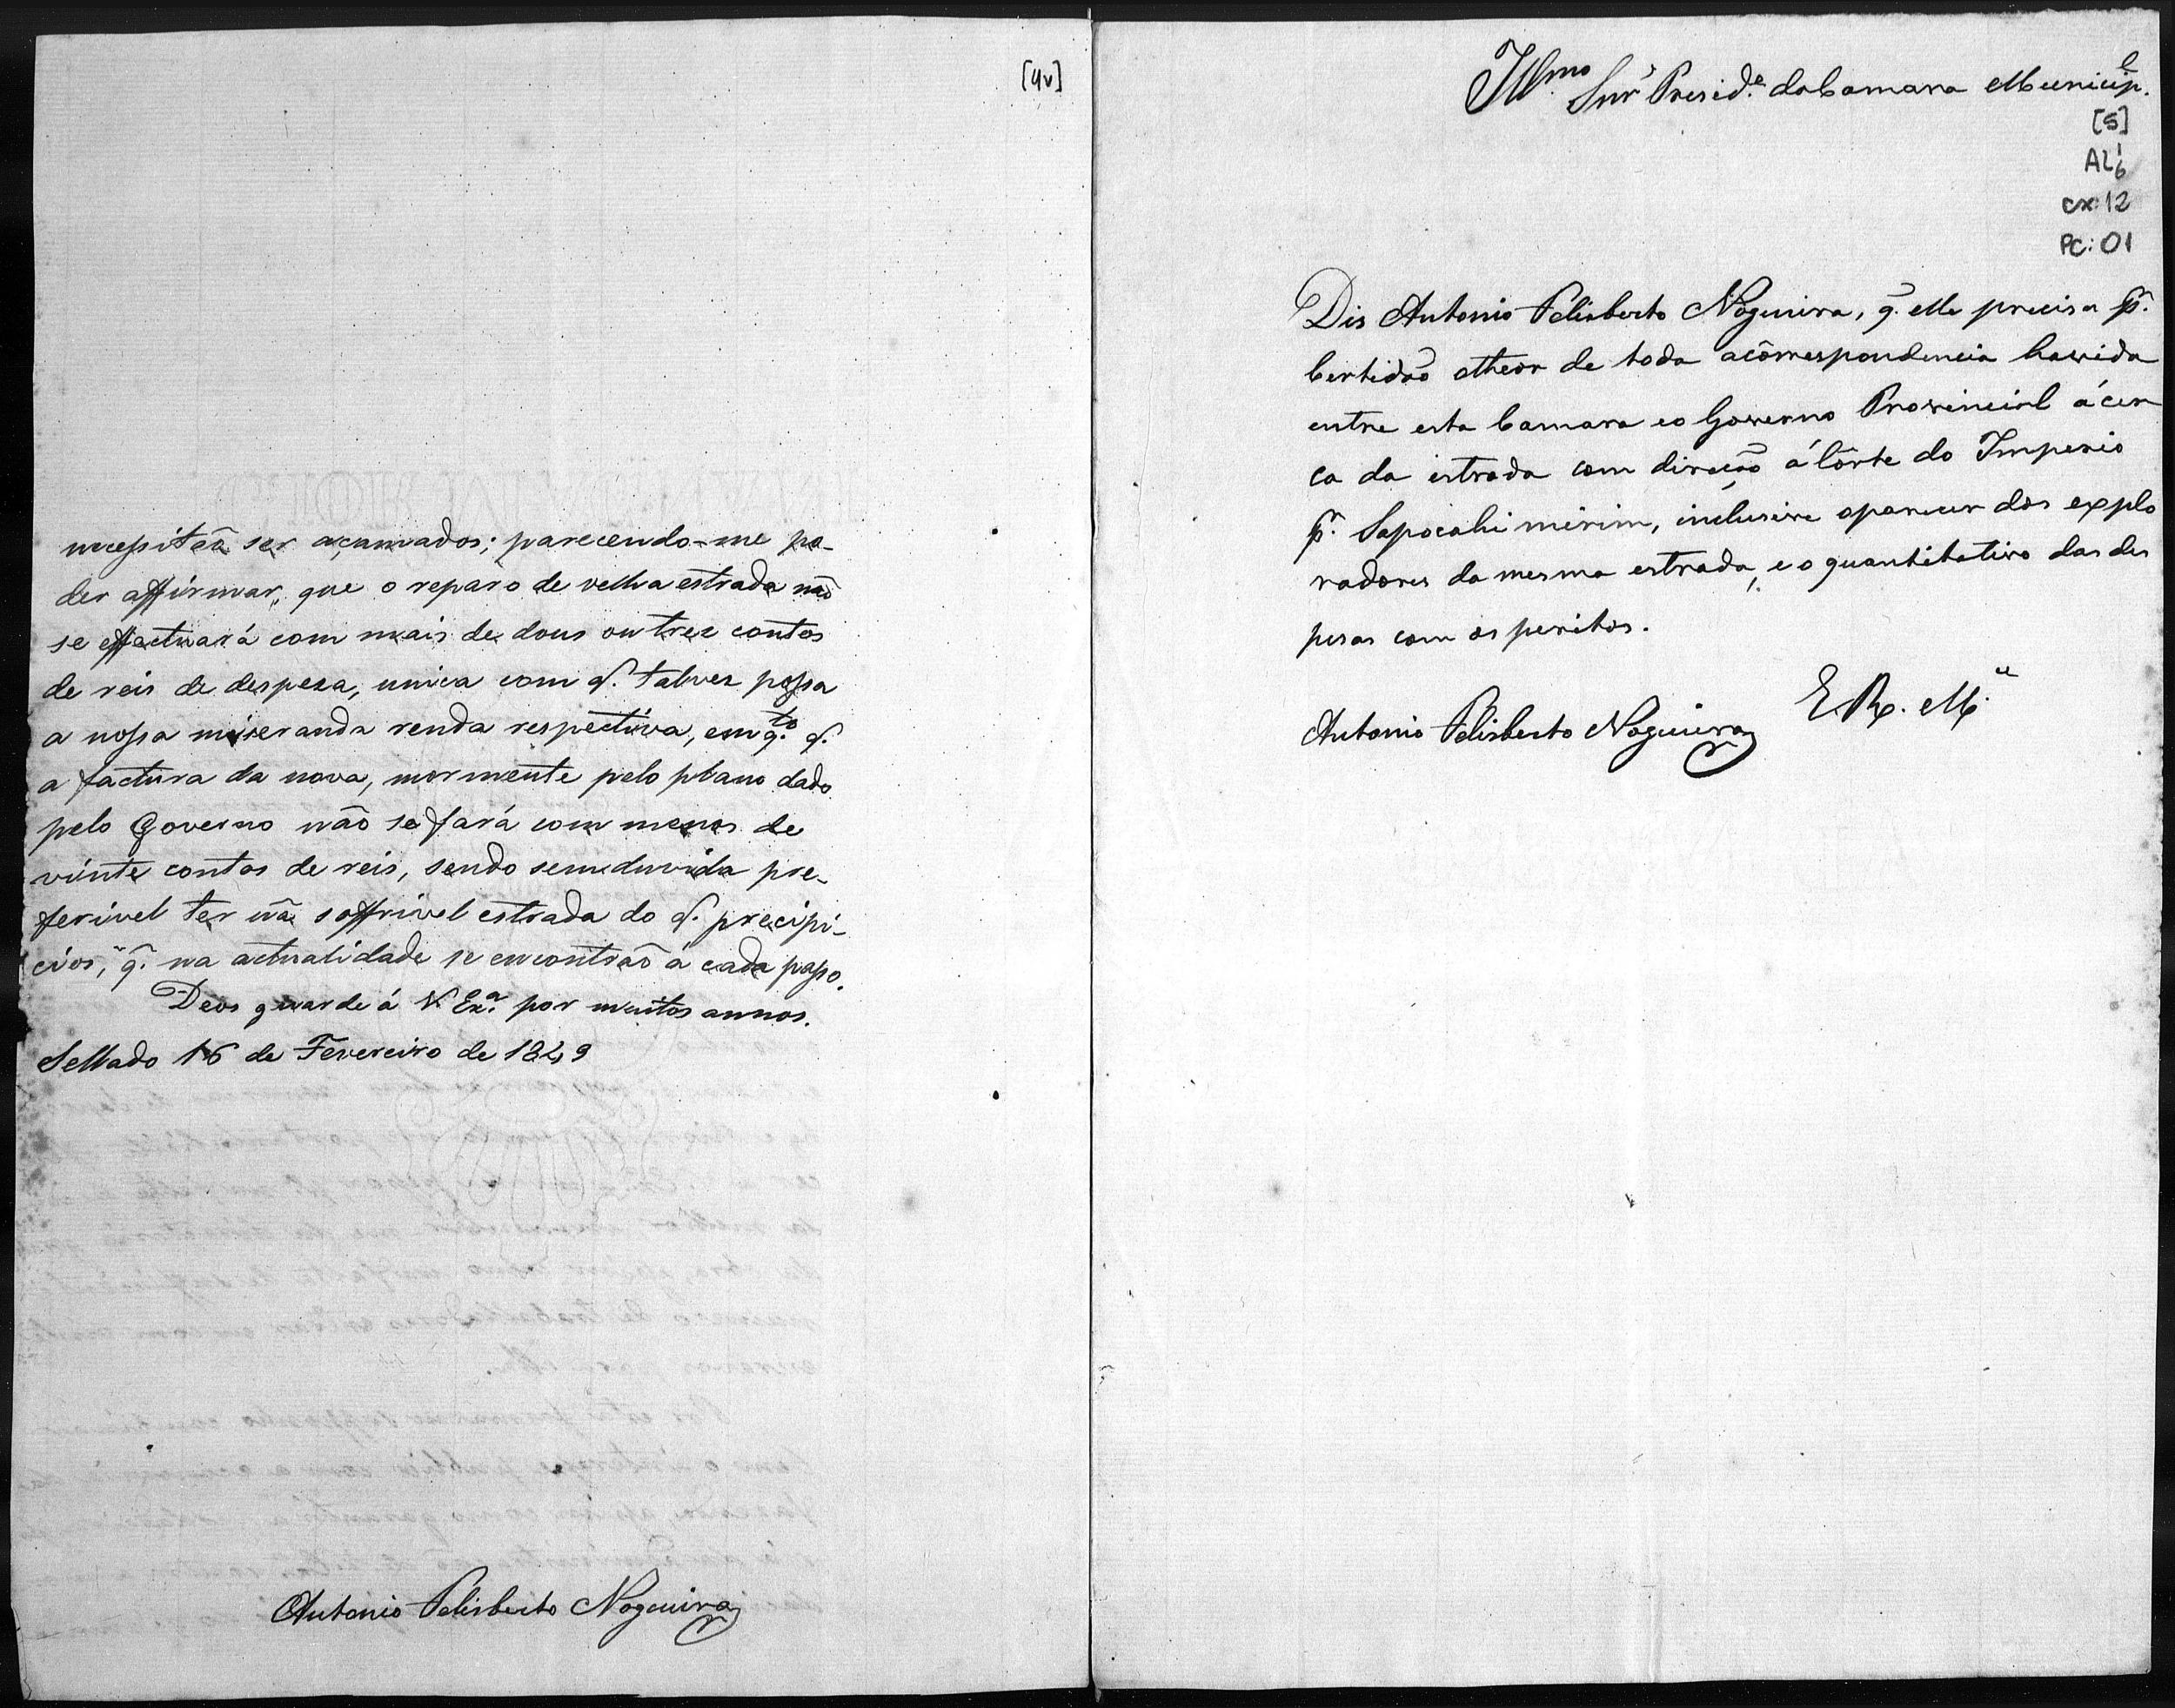 [4v]
necessitaõ ser açamados; parecendo-me po-
der affirmar, que o reparo de velha estrada naõ
se effectuará com mais de dous ou trez contos
de reis de despeza, unica com q. talvez possa
a nossa miseranda renda respectiva, em q.to q.
a factura da nova, mormente pelo plano dado
pelo Governo não se fará com menos de
vinte contos de reis, sendo sem duvida pre-
ferivel ter uã soffrivel estrada do q. precipi-
cios, q. na actualidade se encontraõ á cada passo.
Deos guarde á V. Ex.a por muitos annos.
Selhado 16 de Fevereiro de 1849
Antonio Felisberto Nogueira
Illmo Snr Presid.e da Camara Municip.l
[5]
AL1
6
cx: 12
PC: 01
Dis Antonio Felisberto Nogueira, q. elle precisa pr.
Certidaõ otheor de toda acôrrespondencia havida
entre esta Camara eo Governo Provincial ácer
ca da estrada com direcçaõ á Côrte do Imperio
pr. Sapocahi mirim, inclusive oparecer dos explo
radores da mesma estrada, e o quantitativo das des
pesas com os peritos.
E. R. M.ce
Antonio Felisberto Nogueira